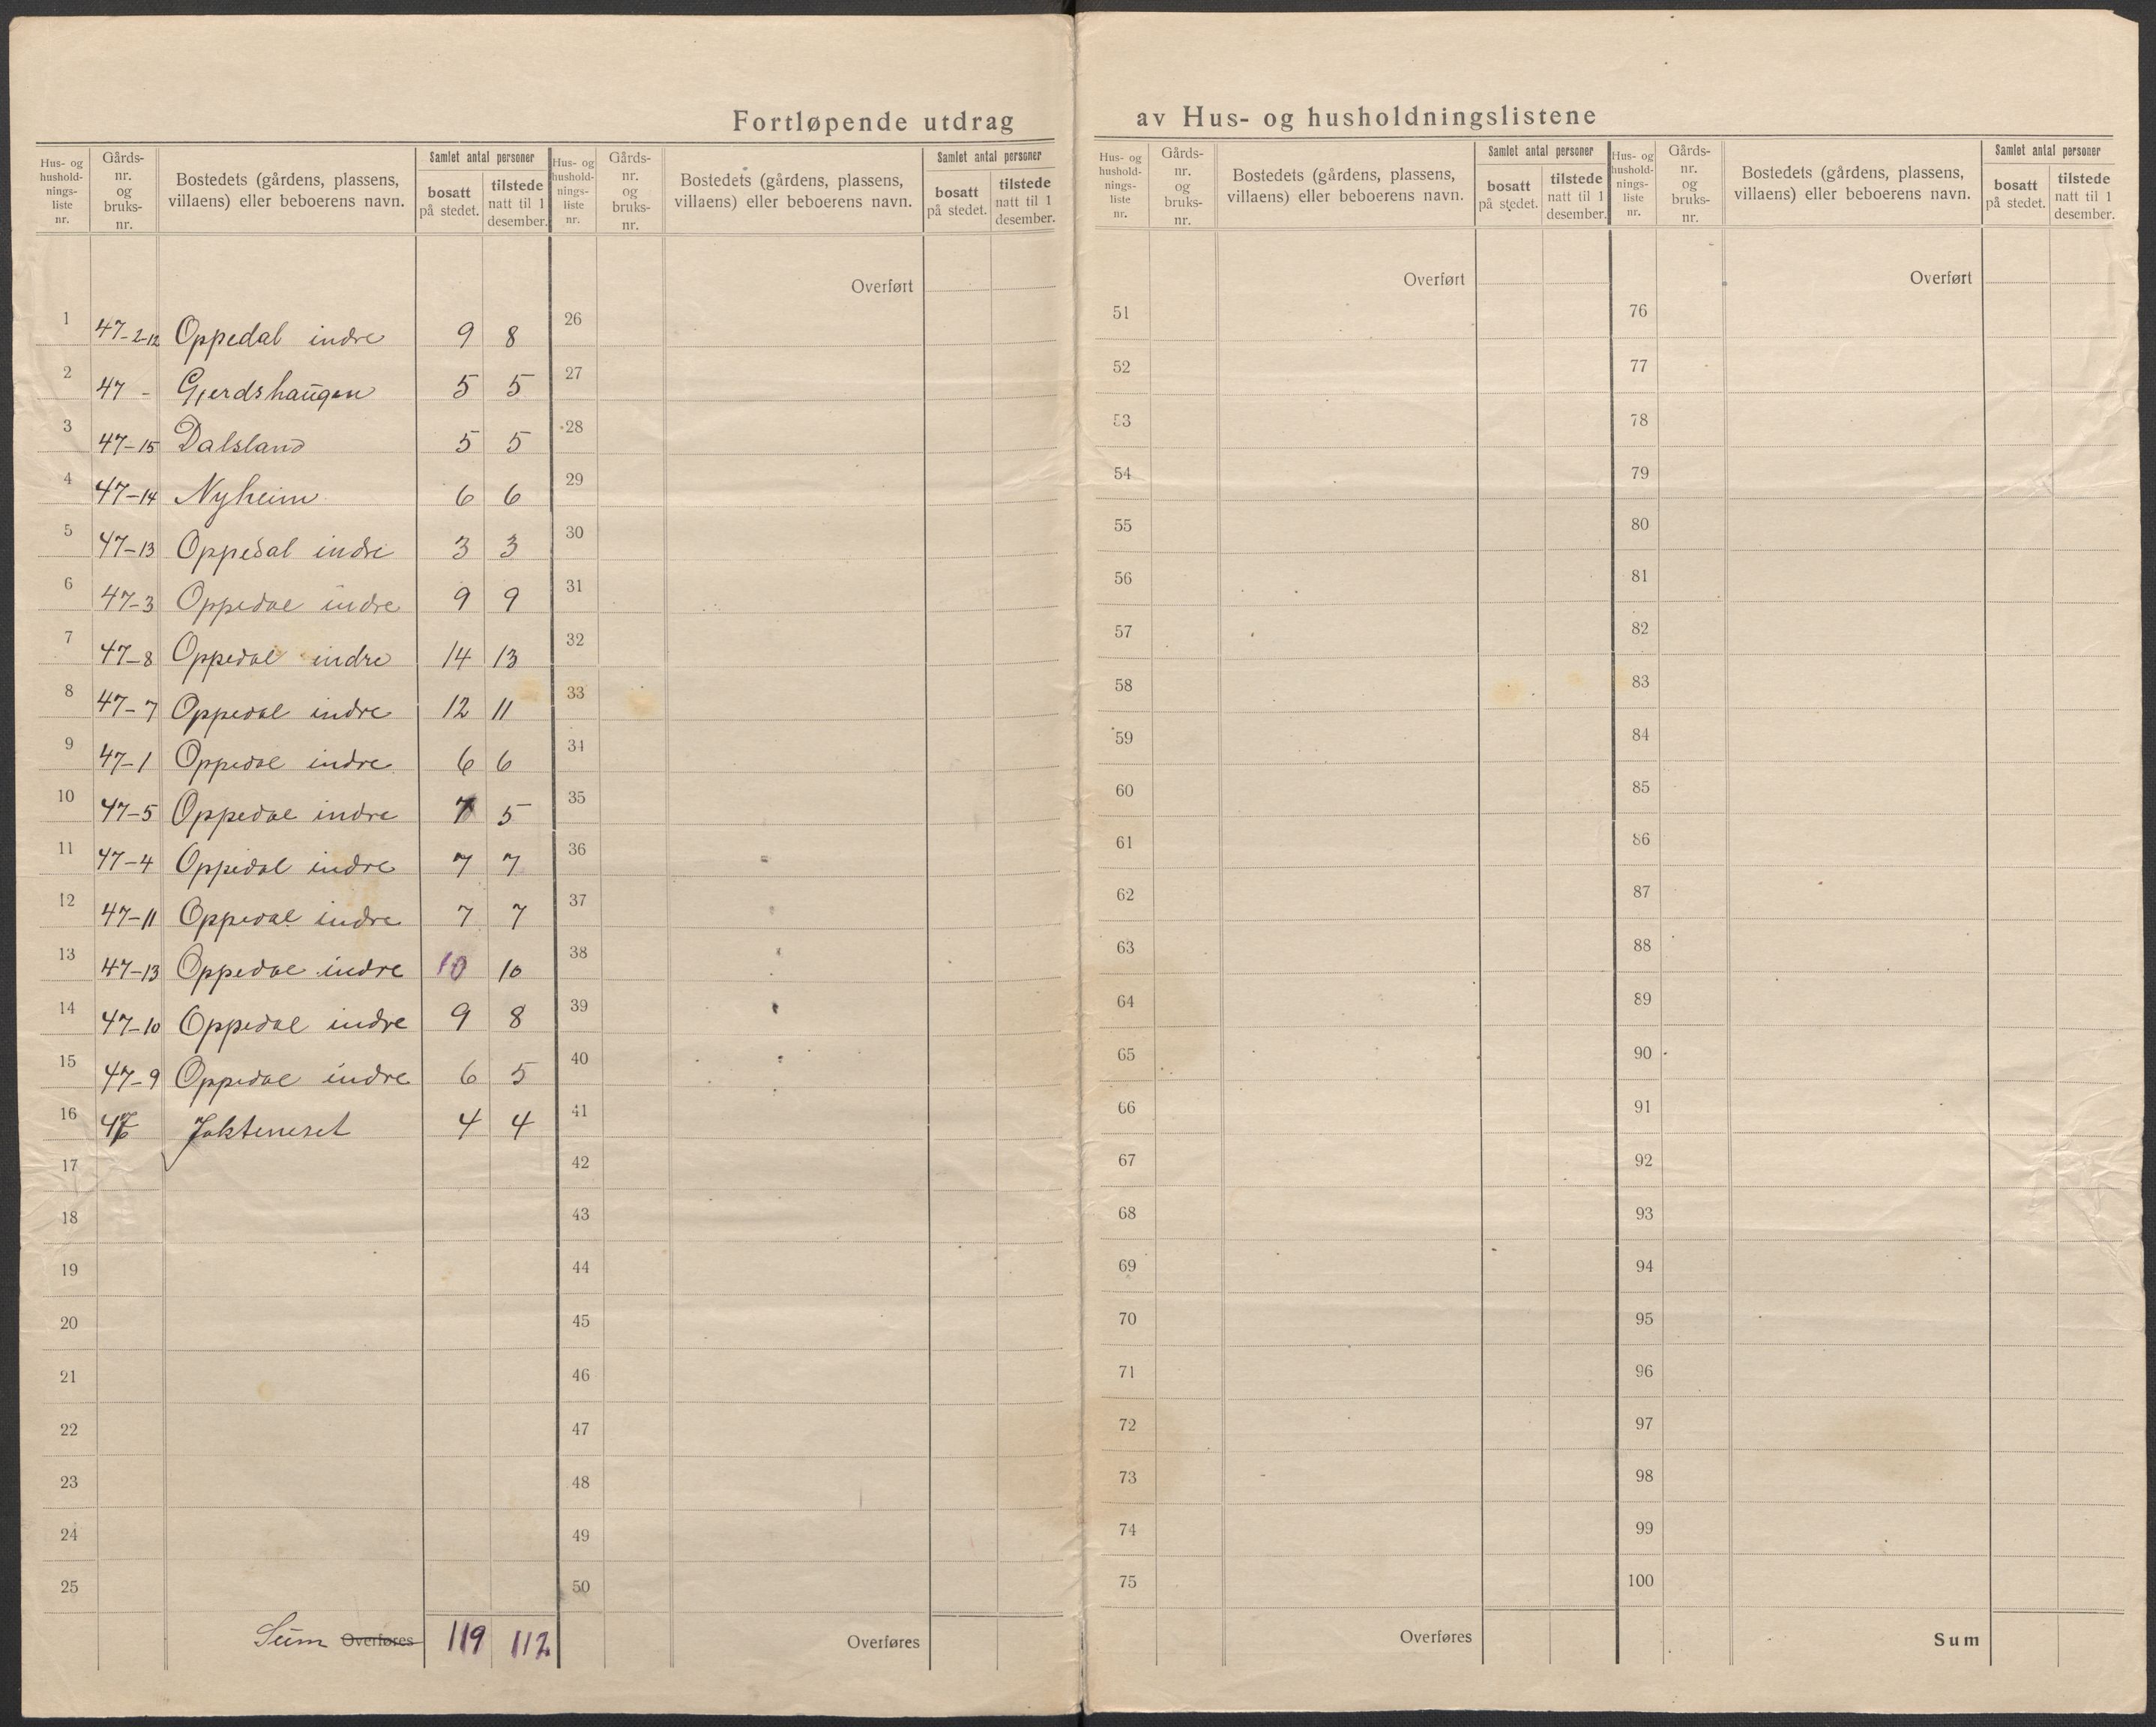 Fortløpende utdrag av Hus- og husholdningslistene
Hus- og hushold-nings-liste nr. Gårds-nr. og bruks-nr. Bostedets (gårdens, plassens, villaens) eller beboerens navn. Samlet antal personer bosatt på stedet. tilstede natt til 1 desember.
Hus- og hushold-nings-liste nr. Gårds-nr. og bruks-nr. Bostedets (gårdens, plassens, villaens) eller beboerens navn. Samlet antal personer bosatt på stedet. tilstede natt til 1 desember.
Hus- og hushold-nings-liste nr. Gårds-nr. og bruks-nr. Bostedets (gårdens, plassens, villaens) eller beboerens navn. Samlet antal personer bosatt på stedet. tilstede natt til 1 desember.
Hus- og hushold-nings-liste nr. Gårds-nr. og bruks-nr. Bostedets (gårdens, plassens, villaens) eller beboerens navn. Samlet antal personer bosatt på stedet. tilstede natt til 1 desember.
Overført Overført Overført
1 47-2-12 Oppedal indre 9 8 26 51 76
2 47 - Gjerdshaugen 5 5 27 52 77
3 47-15 Dalsland 5 5 28 53 78
4 47-14 Nyheim 6 6 29 54 79
5 47-13 Oppedal indre 3 3 30 55 80
6 47-3 Oppedal indre 9 9 31 56 81
7 47-8 Oppedal indre 14 13 32 57 82
8 47-7 Oppedal indre 12 11 33 58 83
9 47-1 Oppedal indre 6 6 34 59 84
10 47-5 Oppedal indre 7 5 35 60 85
11 47-4 Oppedal indre 7 7 36 61 86
12 47-11 Oppedal indre 7 7 37 62 87
13 47-13 Oppedal indre 10 10 38 63 88
14 47-10 Oppedal indre 9 8 39 64 89
15 47-9 Oppedal indre 6 5 40 65 90
16 Jakteneset 4 4 41 66 91
17 42 67 92
18 43 68 93
19 44 69 94
20 45 70 95
21 46 71 96
22 47 72 97
23 48 73 98
24 49 74 99
25 50 75 100
Sum Overføres 119 112 Overføres Overføres Sum